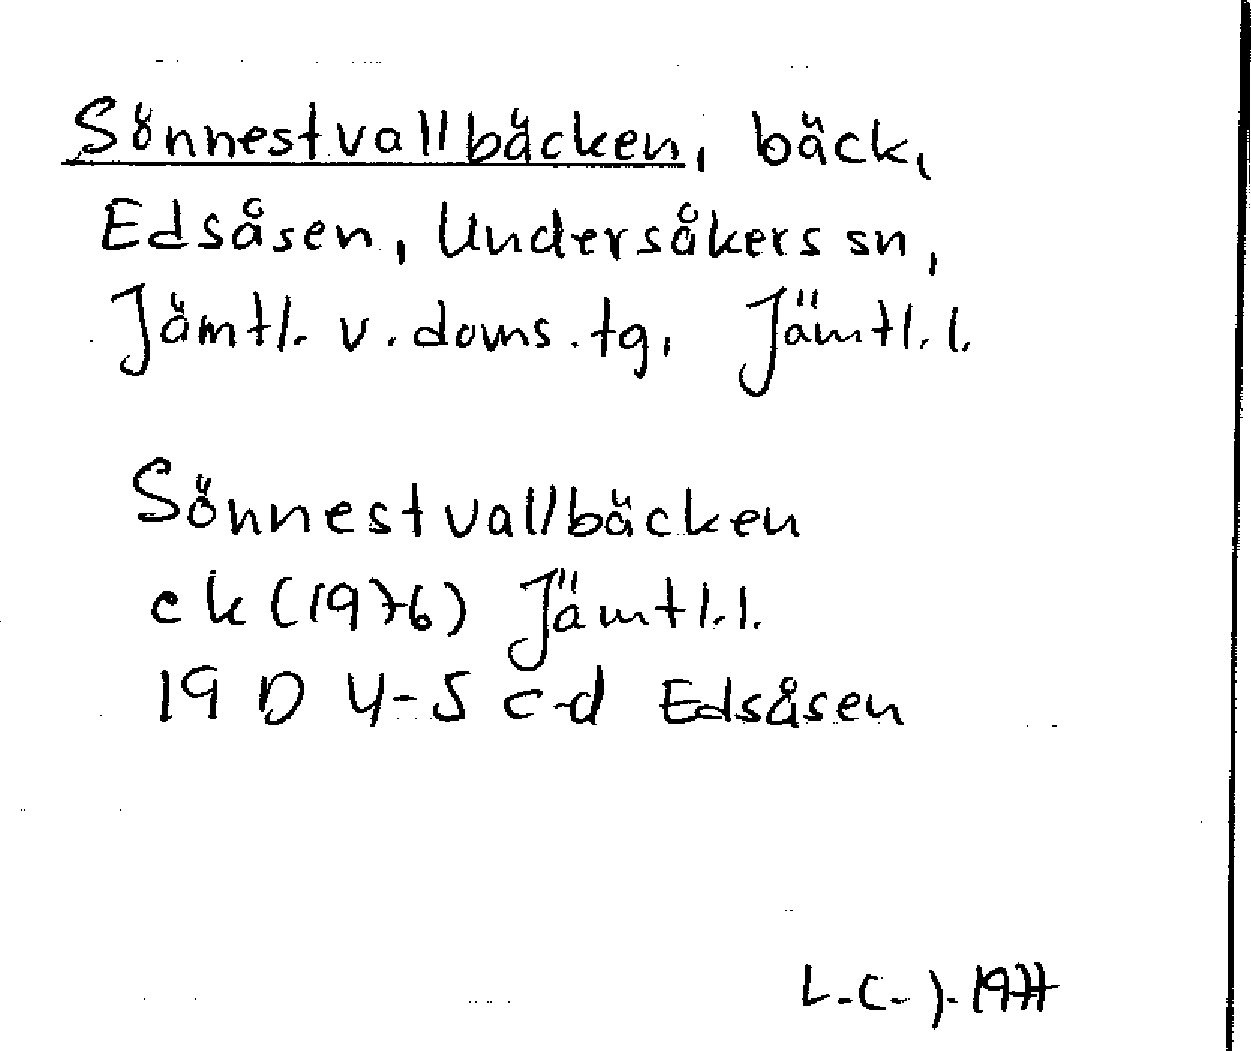 Sönnestvallbäcken, bäck,
Edsåsen, Undersåkers sn,
Jämtl. v. doms. tg, Jämtl. l.
Sönnestvallbäcken
ek (1976) Jämtl. l.
19 D 4-5 c-d Edsåsen
L-C-J-1977